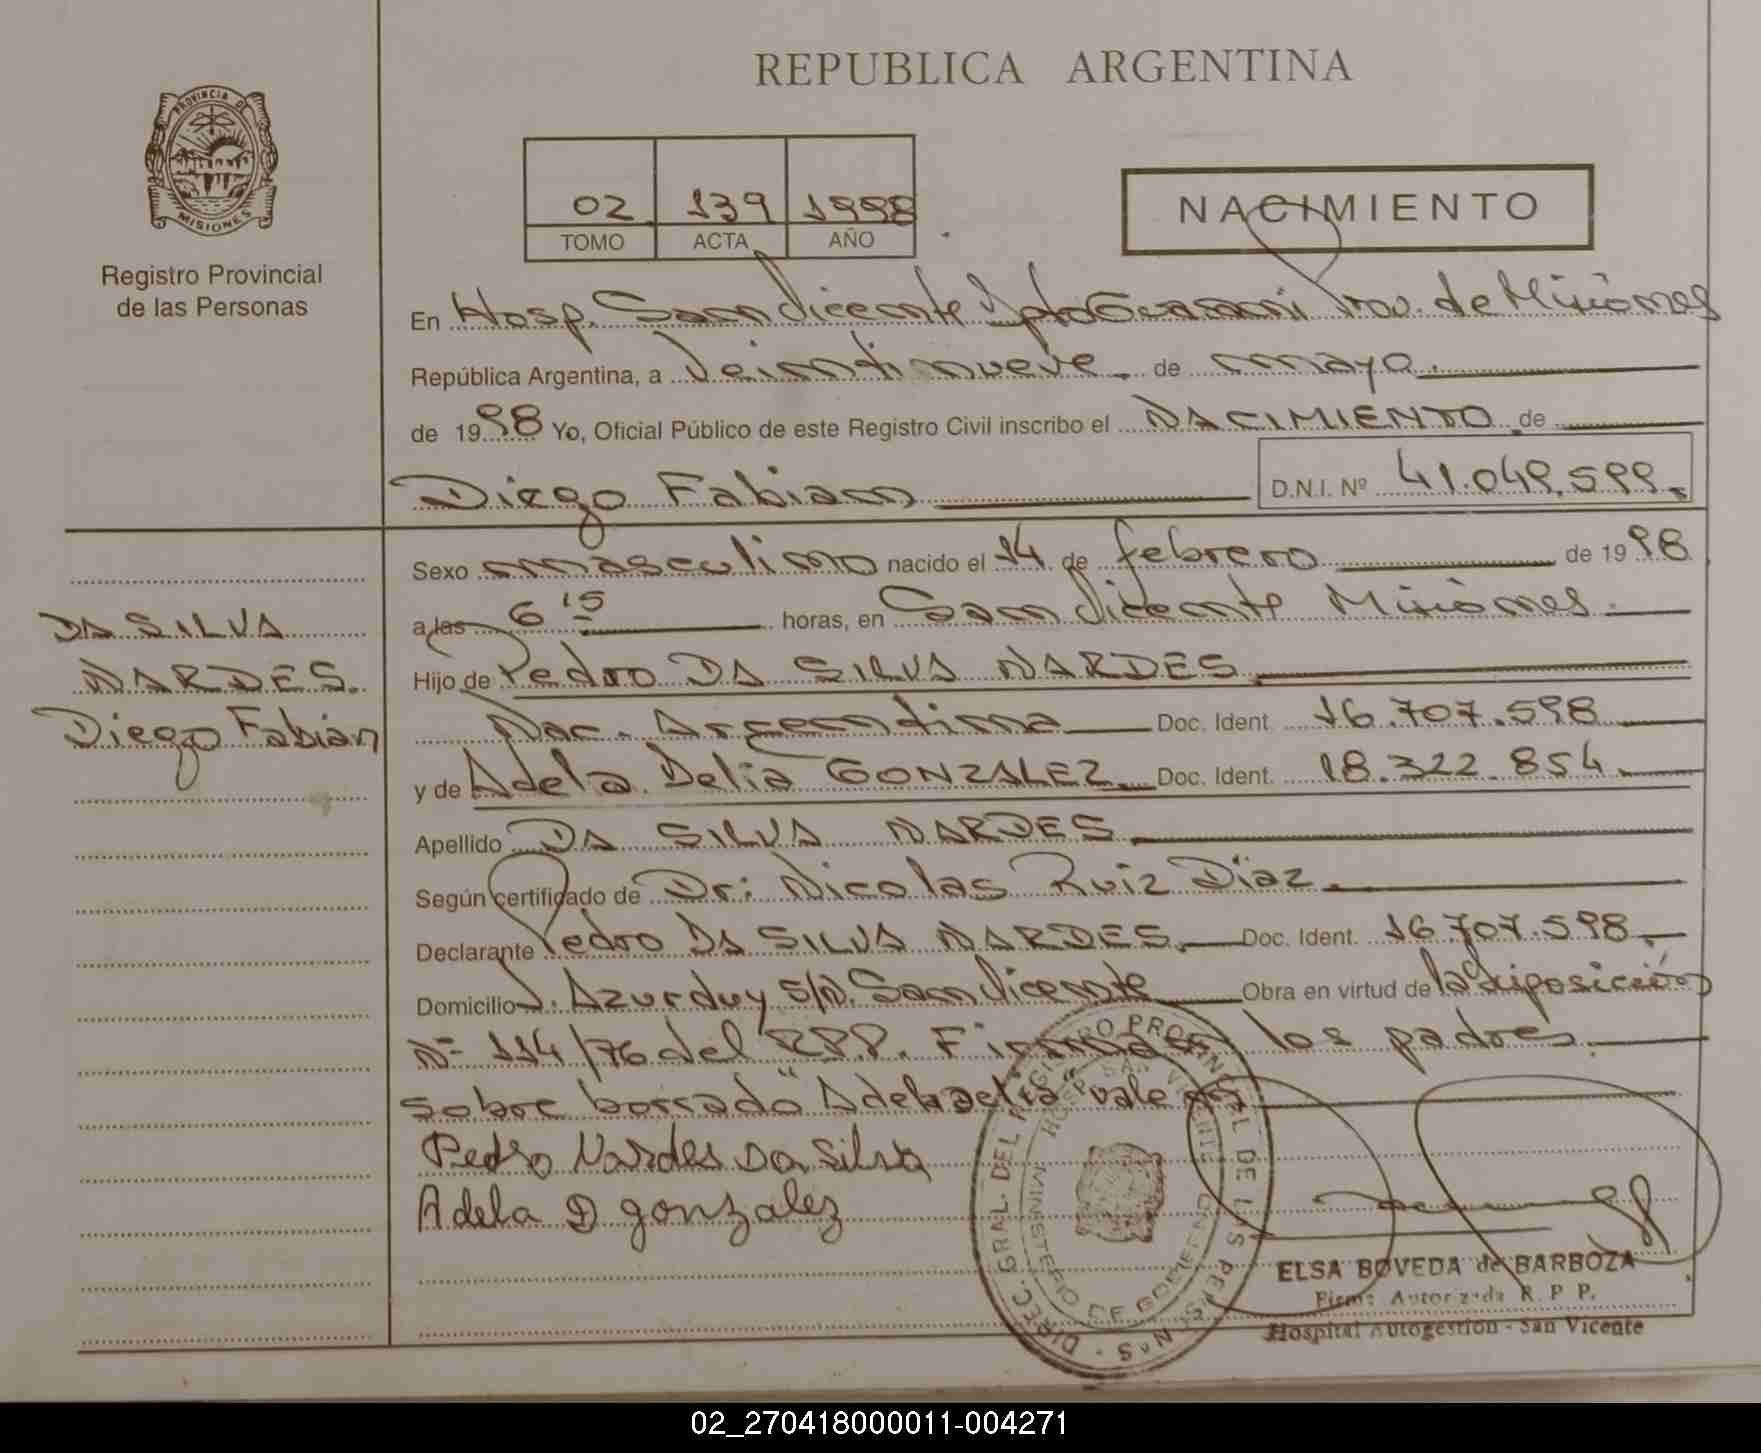 REPUBLICA ARGENTINA
PROVINCIA DE
MISIONES
Registro Provincial
de las Personas
02 139 1998
TOMO ACTA AÑO
NACIMIENTO
En Hosp. San Vicente Dpto Guarani Prov. de Misiones
República Argentina, a Veintinueve de mayo
de 1998 Yo, Oficial Público de este Registro Civil inscribo el NACIMIENTO de
Diego Fabian D.N.I. Nº 41.049.599.
Sexo masculino nacido el 14 de febrero de 1998
a las 6 15 horas, en San Vicente Misiones.
Hijo de Pedro DA SILVA NARDES
Nac. Argentina Doc. Ident. 16.707.598
y de Adela Delia GONZALEZ Doc. Ident. 18.322.854
Apellido DA SILVA NARDES
Según certificado de Dr: Nicolas Ruiz Diaz
Declarante Pedro DA SILVA NARDES Doc. Ident. 16.707.598
Domicilio J. Azurduy s/n. San Vicente Obra en virtud de la disposición
Nº 114/76 del RPP. Firman los padres.
sobre borrado "Adela Delia" vale
Pedro Nardes Da Silva
Adela D gonzalez
DA SILVA
NARDES.
Diego Fabián
DIREC. GRAL. DEL REGISTRO PROVINCIAL DE LAS PERSONAS
HOSP. SAN VICENTE
MINISTERIO DE GOBIERNO
ELSA BOVEDA de BARBOZA
Firma Autorizada R. P P.
Hospital Autogestion - San Vicente
02_270418000011-004271